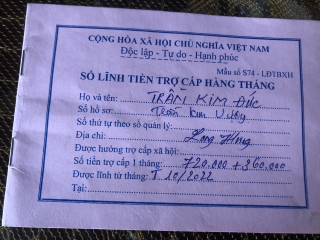 CỘNG HÒA XÃ HỘI CHỦ NGHĨA VIỆT NAM
Độc lập - Tự do - Hạnh phúc
Mẫu số S74 - LĐTBXH
SỔ LĨNH TIỀN TRỢ CẤP HÀNG THÁNG
Họ và tên: TRẦN KIM ĐỨC
Số hồ sơ: Trần Kim
Số thứ tự theo sổ quản lý:
Địa chỉ: Long Hưng
Được hưởng trợ cấp xã hội:
Số tiền trợ cấp 1 tháng: 720.000 + 360.000
Được lĩnh từ tháng: T 10/2022
Tại: